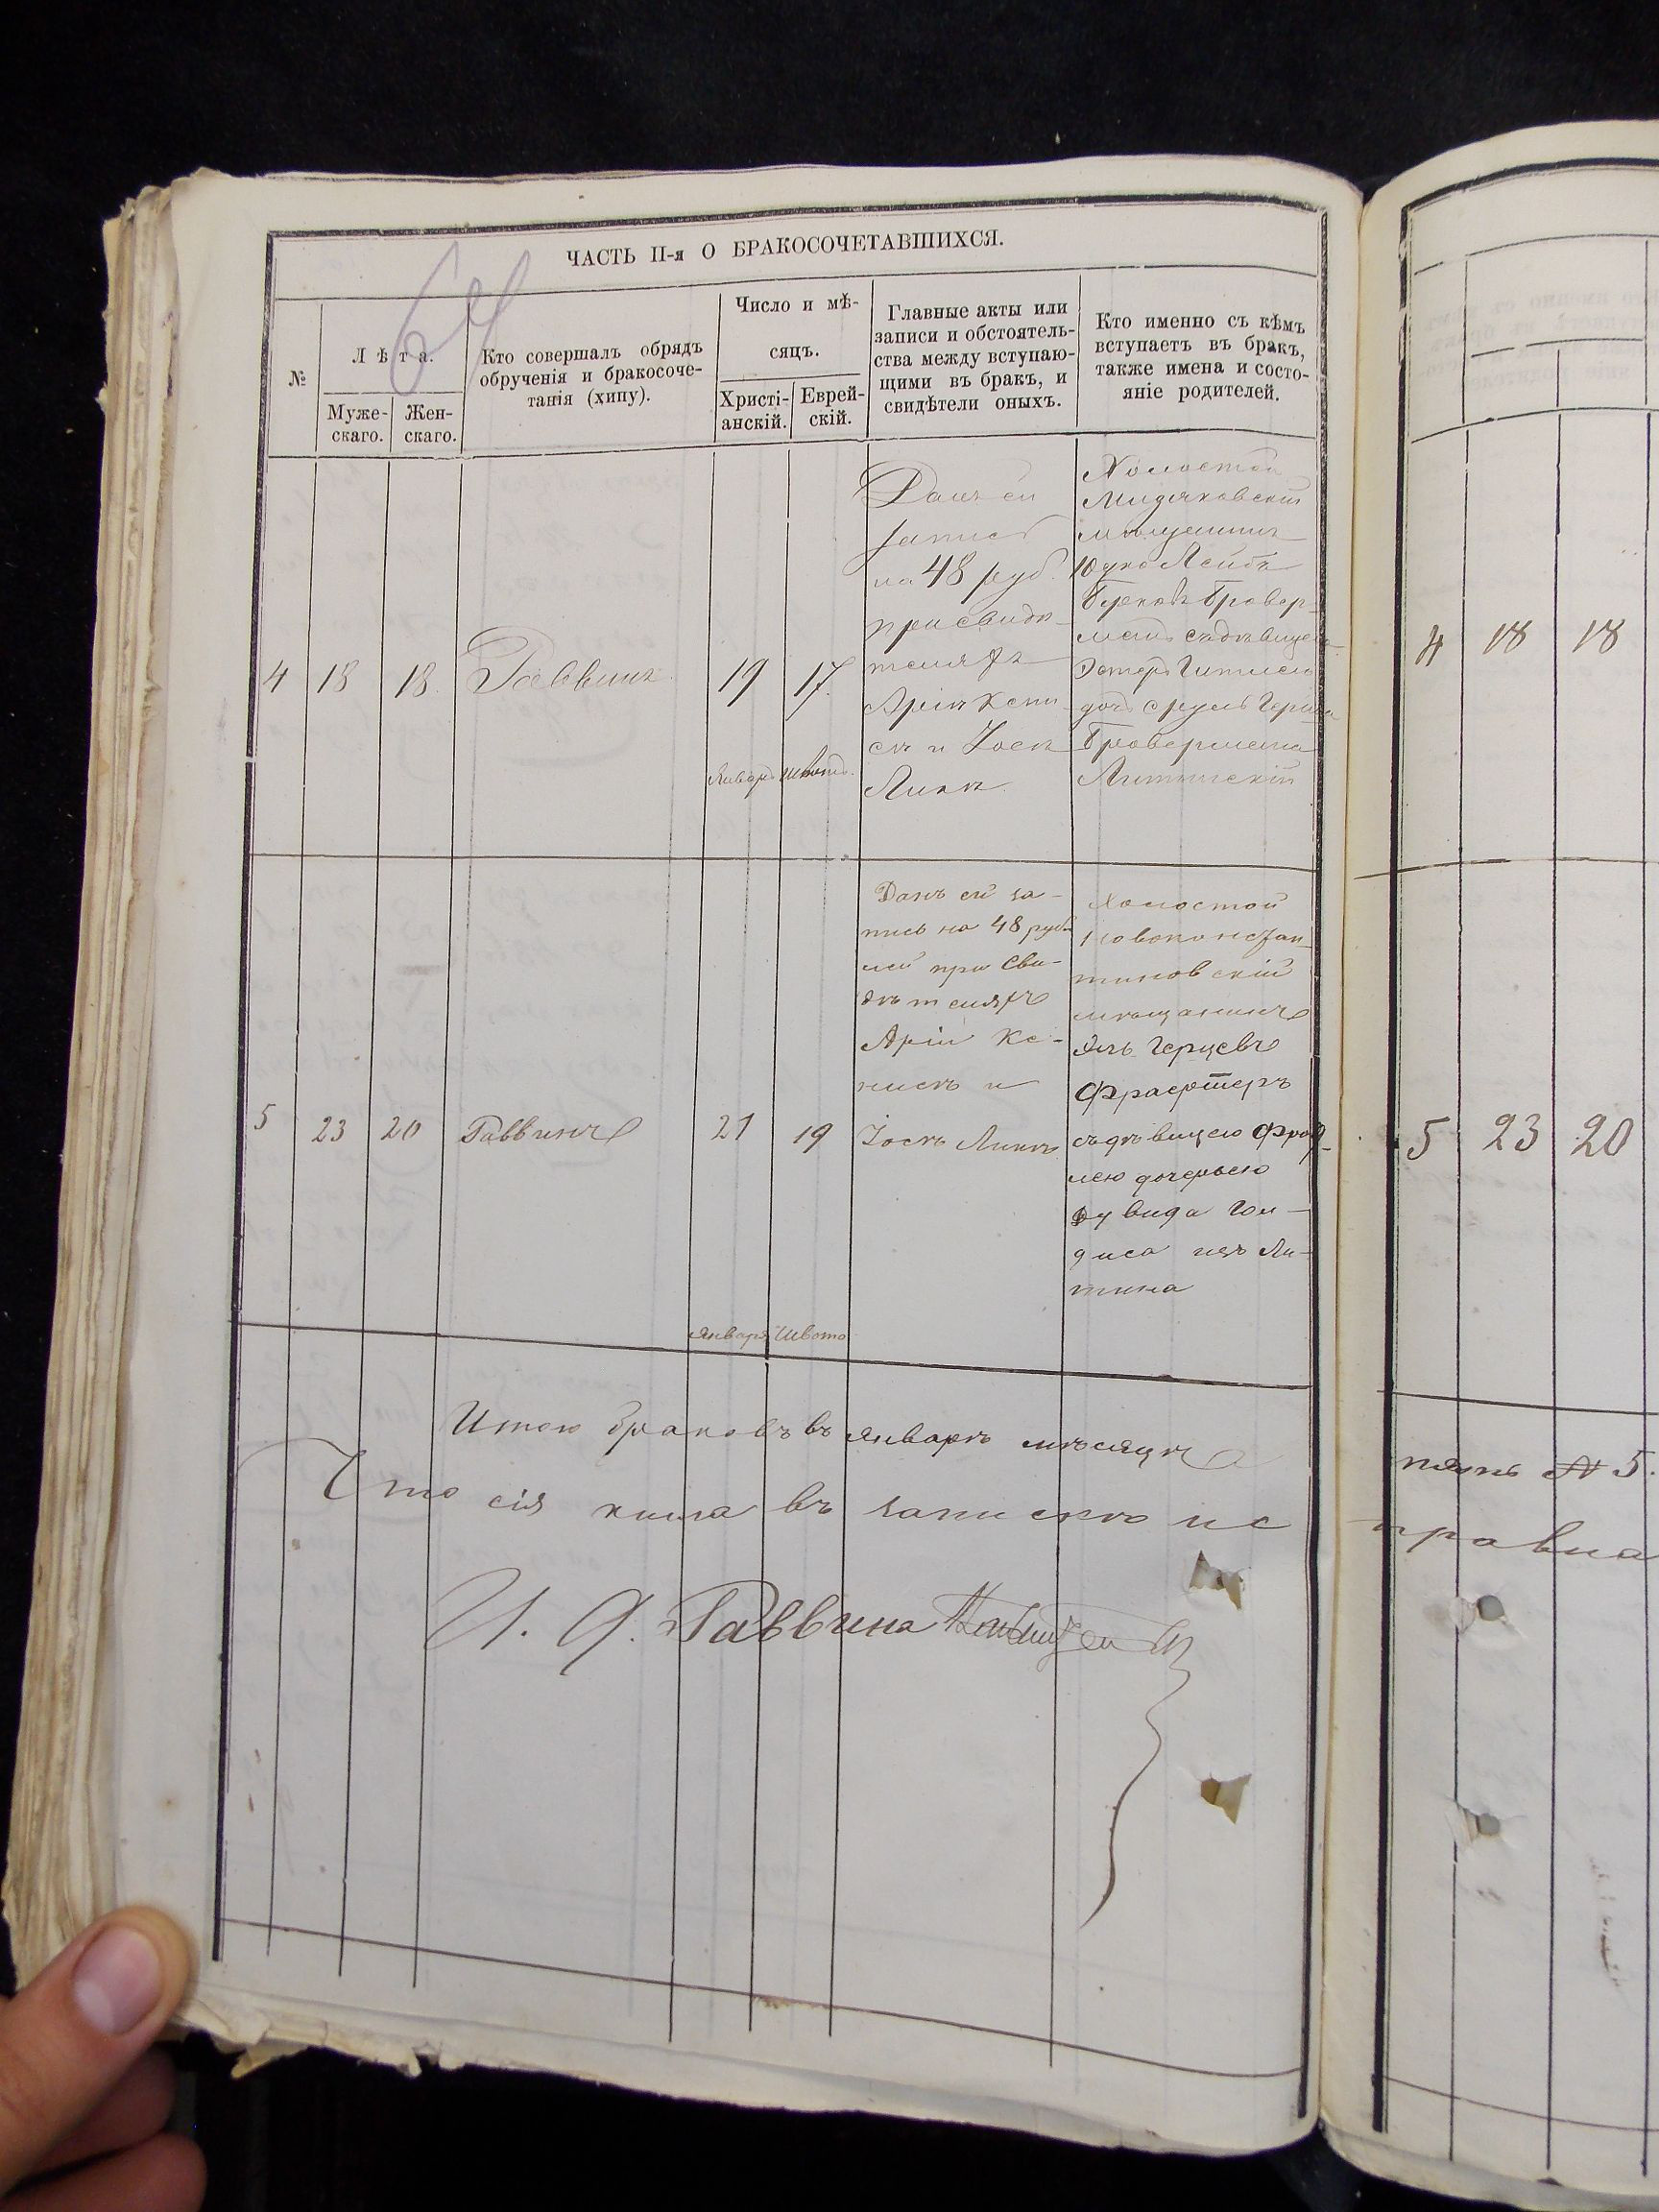 ЧАСТЬ II-я О БРАКОСОЧЕТАВШИХСЯ.
64
№
Лѣта.
Муже-
скаго.
Жен-
скаго.
Кто совершалъ обрядъ
обрученія и бракосоче-
танія (хипу).
Число и мѣ-
сяцъ.
Христі-
анскій.
Еврей-
скій.
Главные акты или
записи и обстоятель-
ства между вступаю-
щими въ бракъ, и
свидѣтели оныхъ.
Кто именно съ кѣмъ
вступаетъ въ бракъ,
также имена и состо-
яніе родителей.
4
18
18
Раввинъ
19
Январь
17.
Шватъ
Данъ ей
запись
на 48 руб.
при свидѣ-
теляхъ
Аріѣ Кени-
съ и Іось
Линкъ
Холостой
мѣщанинъ
Юдко Лейбъ
Берковъ Бровер-
манъ съ дѣвицею
Эстеръ Гитлею
Бровермана
Литинскій
5
23
20
Раввинъ
21
Января
19
Швата
Данъ ей за-
пись на 48 руб-
лей при сви-
дѣтеляхъ
Арій Ке-
нисъ и
Іось Линкъ
Холостой
Новоконстан-
тиновскій
мѣщанинъ
Герцевъ
съ дѣвицею
дочерью
Дувида Гол-
диса изъ Ли-
тина
Итого браковъ въ январѣ мѣсяцѣ
Что сія книга въ запискѣ ис
И. Д. Раввина
4 18 18
5 23 20
пять № 5.
правна